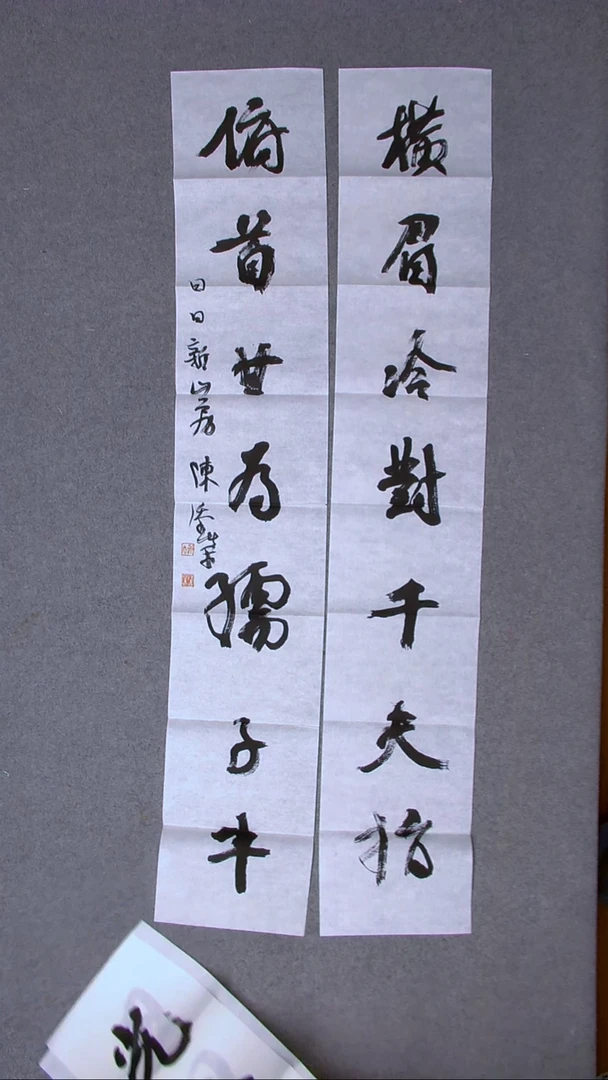 橫眉冷對千夫指
俯首甘為孺子牛
日日新山房 陳